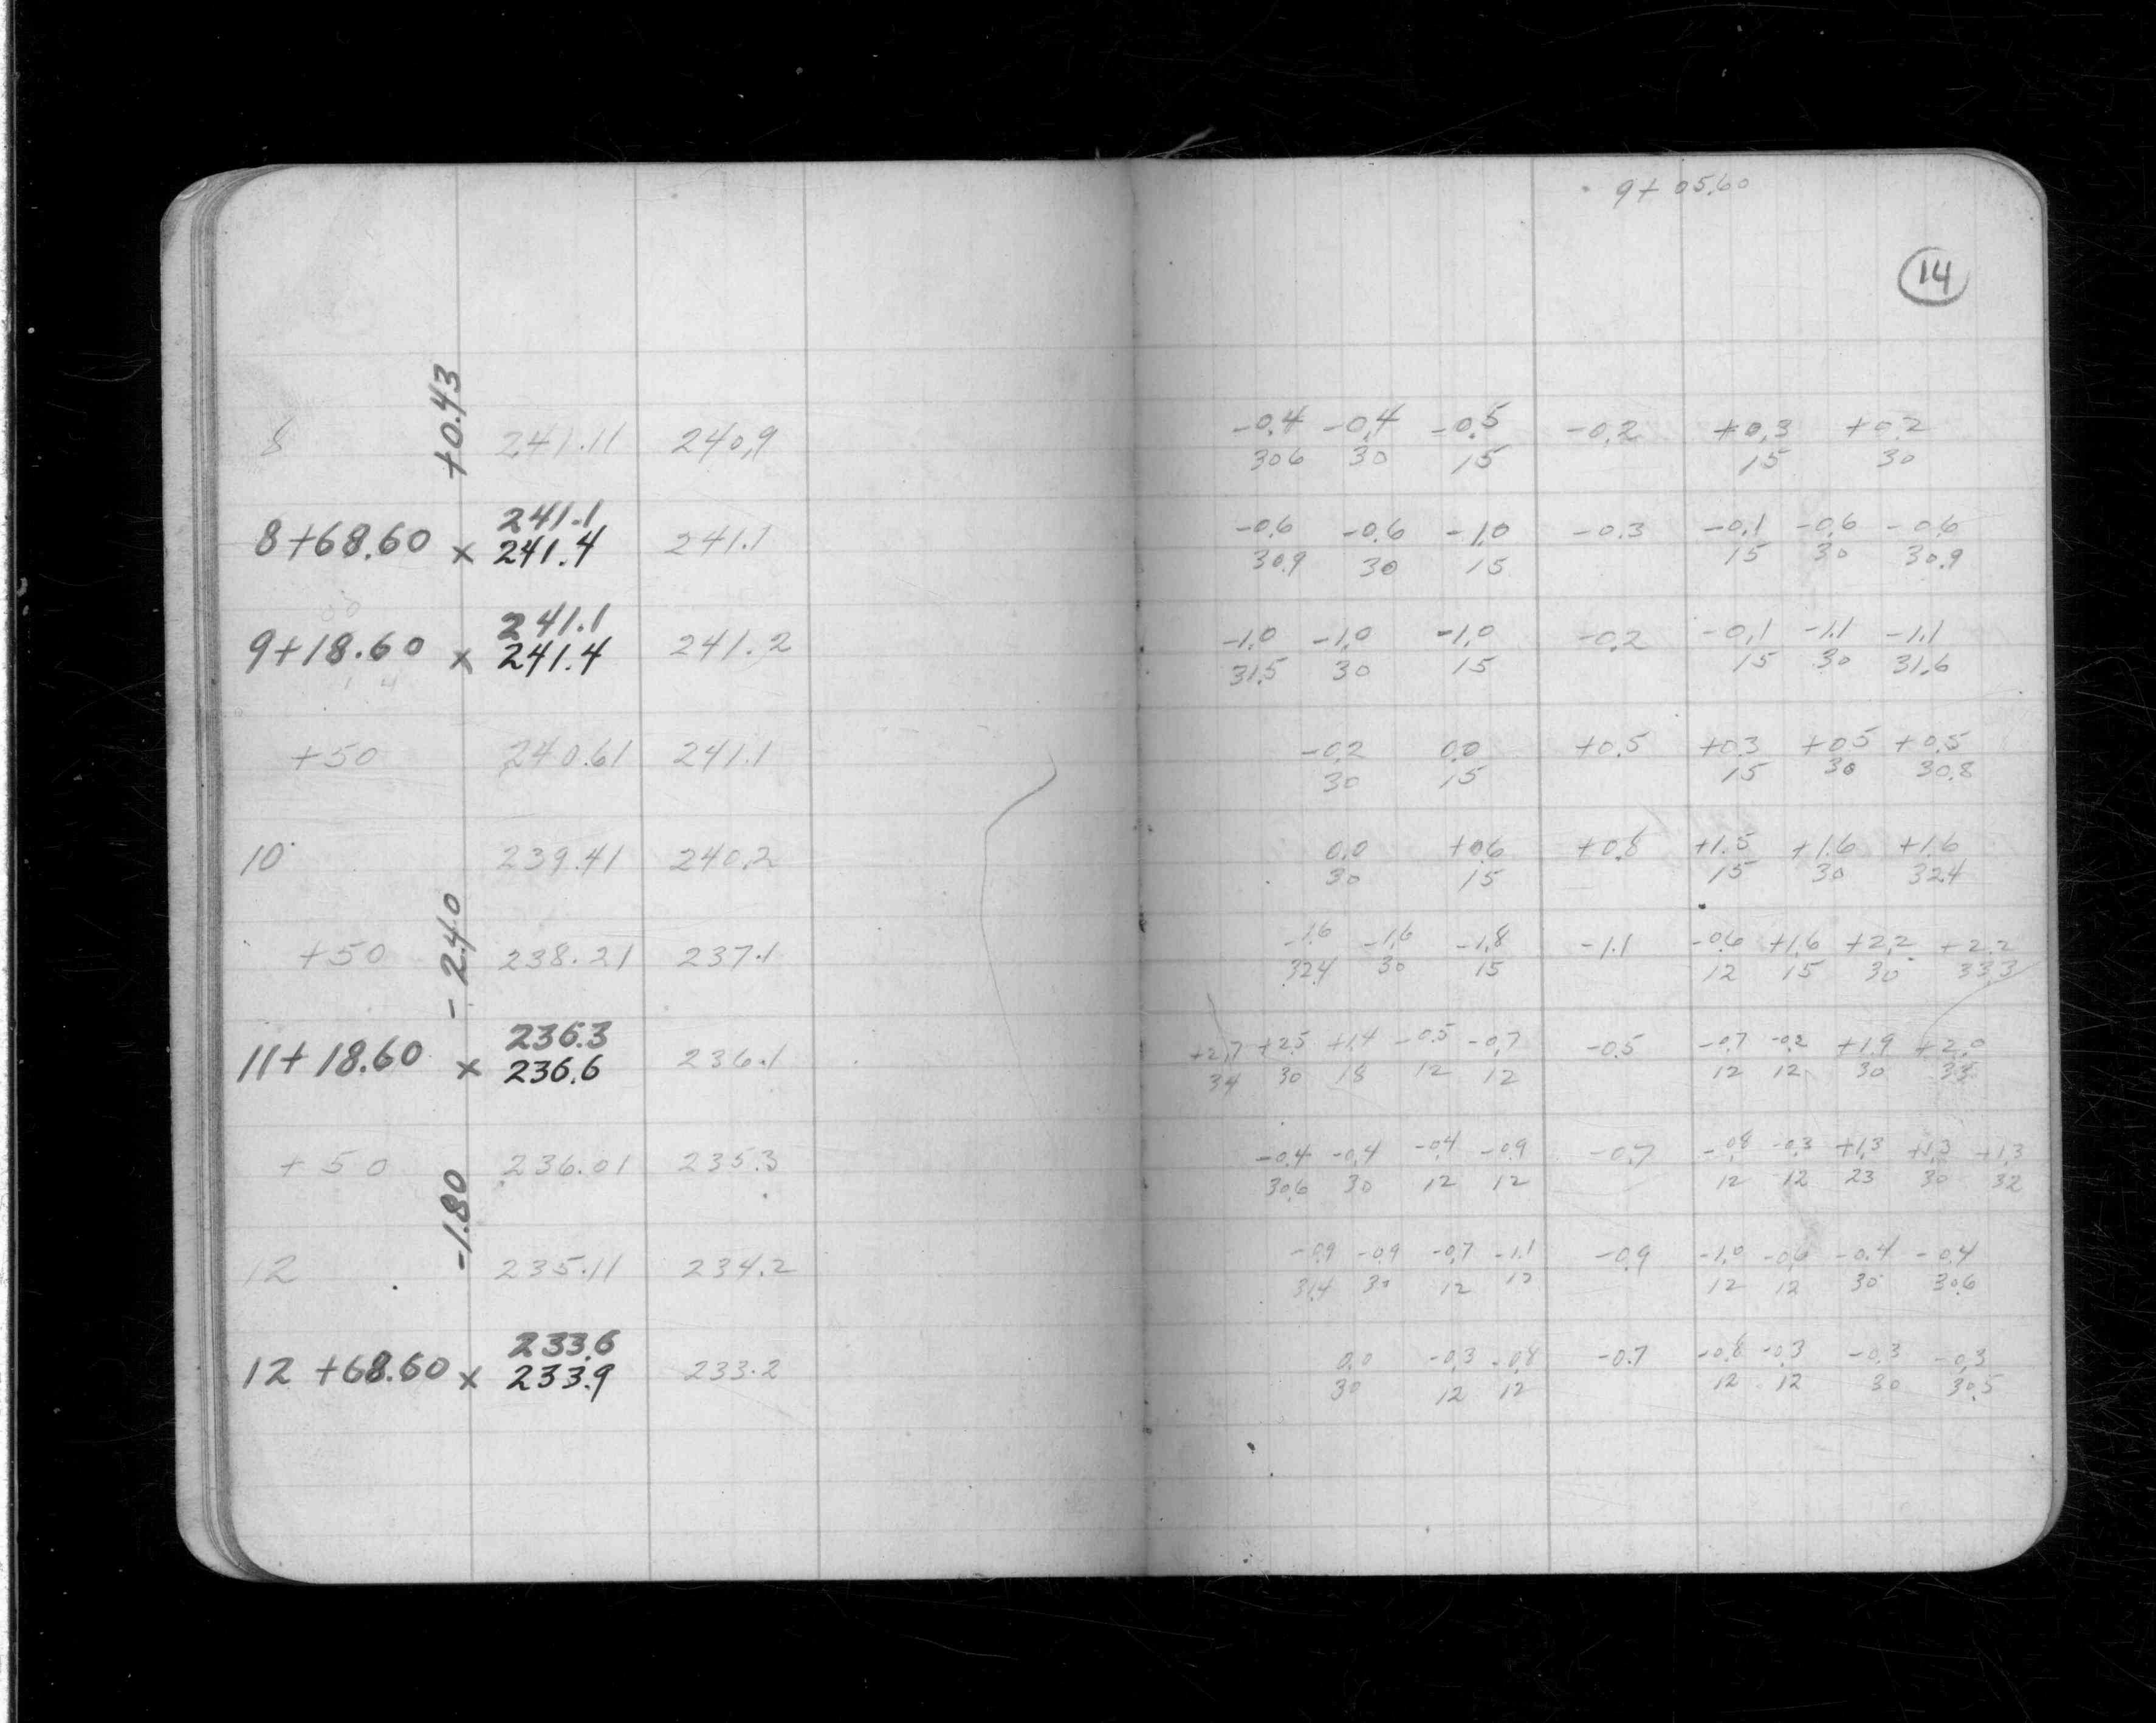 9+05.60
14
+0.43
8 241.11 240.9 -0.4 -0.4 -0.5 -0.2 +0.3 +0.2
306 30 15 15 30
241.1
8+68.60 x 241.4 241.1 -0.6 -0.6 -1.0 -0.3 -0.1 -0.6 -0.6
30.9 30 15 15 30 30.9
00
241.1
9+18.60 x 241.4 241.2 -1.0 -1.0 -1.0 -0.2 -0.1 -1.1 -1.1
31.5 30 15 15 30 31.6
1 4
+50 240.61 241.1 -0.2 0.0 +0.5 +0.3 +0.5 +0.5
30 15 15 30 30.8
10 239.41 240.2 0.0 +0.6 +0.8 +1.5 +1.6 +1.6
30 15 15 30 32.4
-2.40
+50 238.21 237.1 -1.6 -1.6 -1.8 -1.1 -0.6 +1.6 +2.2 +2.2
32.4 30 15 12 15 30 33.3
236.3
11+18.60 x 236.6 236.1 +2.7 +2.5 +1.4 -0.5 -0.7 -0.5 -0.7 -0.2 +1.9 +2.0
34 30 18 12 12 12 12 30 33
-1.80
+50 236.01 235.3 -0.4 -0.4 -0.4 -0.9 -0.7 -0.8 -0.3 +1.3 +1.3 +1.3
30.6 30 12 12 12 12 23 30 32
12 235.11 234.2 -0.9 -0.9 -0.7 -1.1 -0.9 -1.0 -0.6 -0.4 -0.4
31.4 30 12 12 12 12 30 30.6
233.6
12+68.60 x 233.9 233.2 0.0 -0.3 -0.8 -0.7 -0.8 -0.3 -0.3 -0.3
30 12 12 12 12 30 30.5